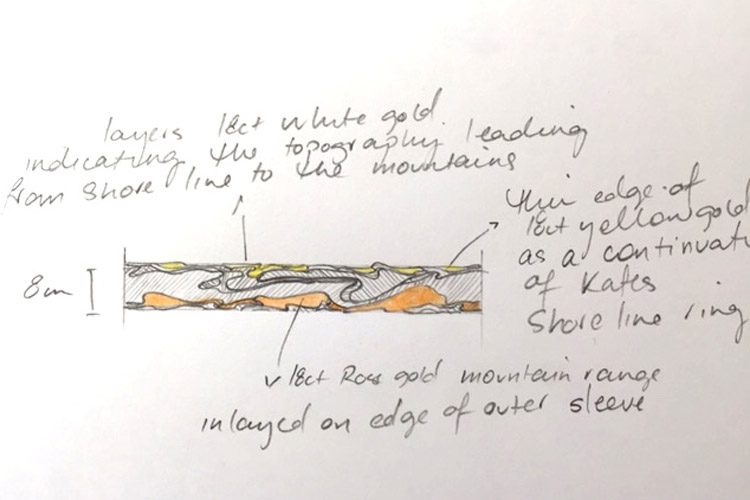 layers 18ct white gold
indicating the topography leading
from shore line to the mountains
thin edge of
18ct yellow gold
as a continuat
of Kates
Shore line ring
8mm
18ct Rose gold mountain range
inlayed on edge of outer sleeve